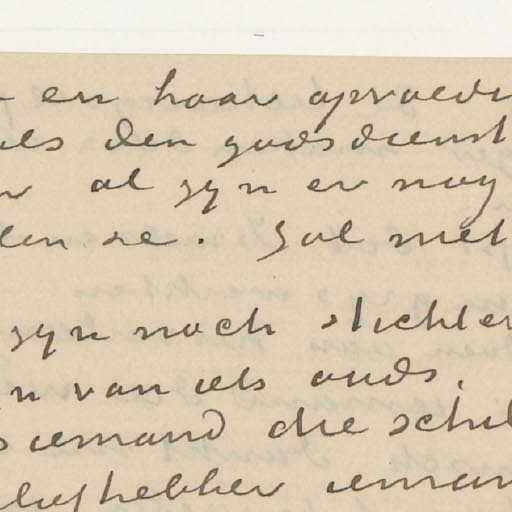 en haar opvoedi
als den godsdienst
al zyn er nog
len ze. Zal met
zyn noch slichter
n van iets ouds.
iemand die schil
liefhebber ieman